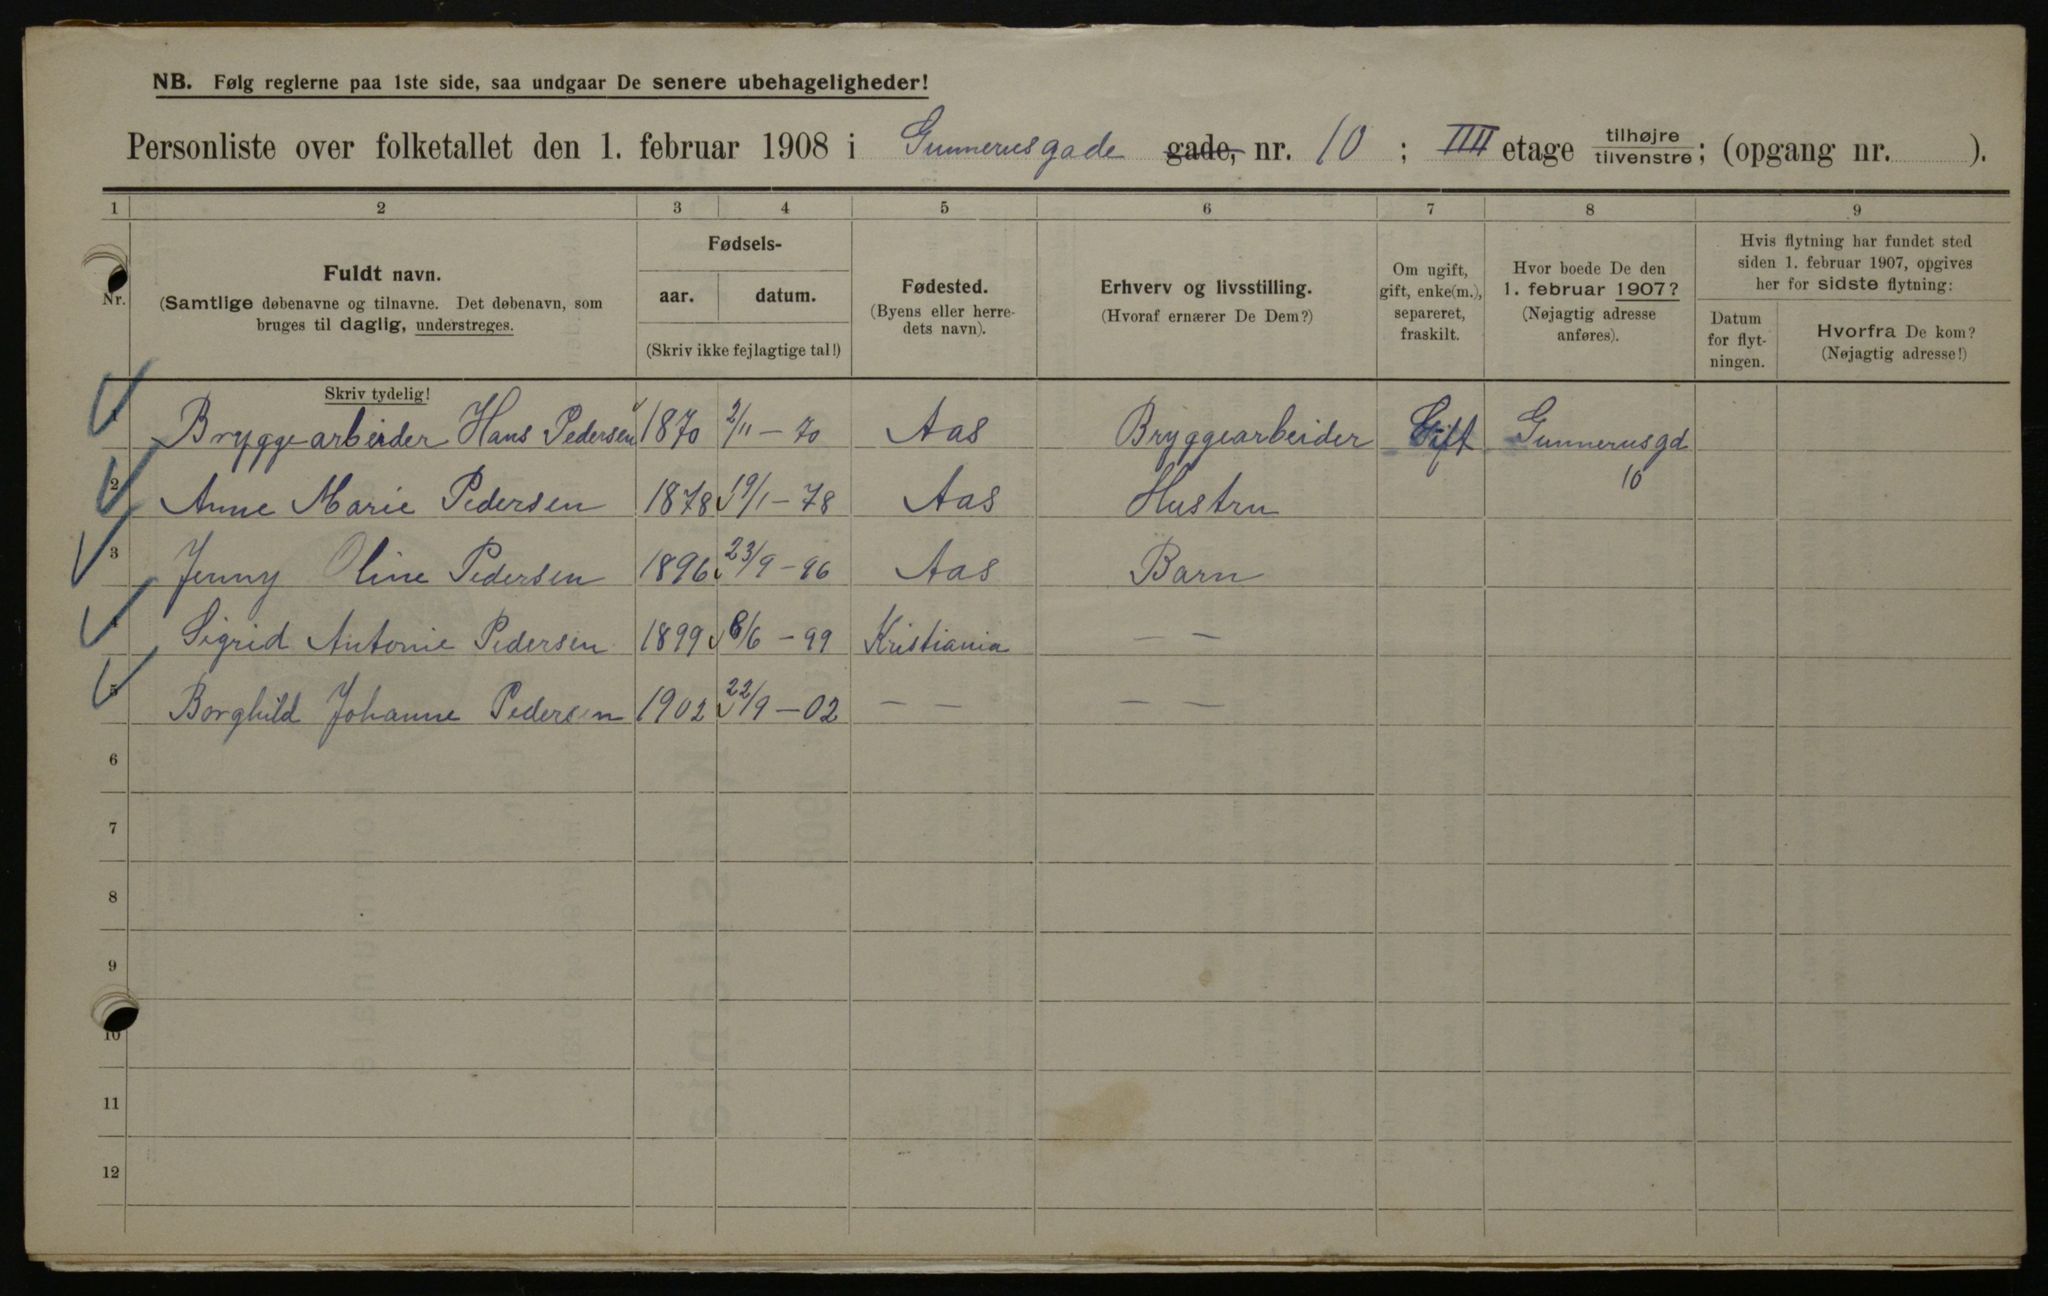 NB. Følg reglerne paa 1ste side, saa undgaar De senere ubehageligheder!
Personliste over folketallet den 1. februar 1908 i Gunnerusgade gade, nr. 10 ; IIII etage tilhøjre tilvenstre; (opgang nr. ).
1 2 3 4 5 6 7 8 9
Nr.
Fuldt navn.
(Samtlige døbenavne og tilnavne. Det døbenavn, som
bruges til daglig, understreges.
Skriv tydelig!
Fødsels-
aar. datum.
(Skriv ikke fejlagtige tal!)
Fødested.
(Byens eller herre-
dets navn).
Erhverv og livsstilling.
(Hvoraf ernærer De Dem?)
Om ugift,
gift, enke(m.),
separeret,
fraskilt.
Hvor boede De den
1. februar 1907?
(Nøjagtig adresse
anføres).
Hvis flytning har fundet sted
siden 1. februar 1907, opgives
her for sidste flytning:
Datum
for flyt-
ningen.
Hvorfra De kom?
(Nøjagtig adresse!)
1 Bryggearbeider Hans Pedersen 1870 2/11 - 70 Aas Bryggearbeider Gift Gunnerusgd
10
2 Anne Marie Pedersen 1878 19/1 - 78 Aas Hustru
3 Jenny Oline Pedersen 1896 23/9 - 96 Aas Barn
4 Sigrid Antonie Pedersen 1899 8/6 - 99 Kristiania — —
5 Borghild Johanne Pedersen 1902 22/9 - 02 — — — —
6
7
8
9
10
11
12